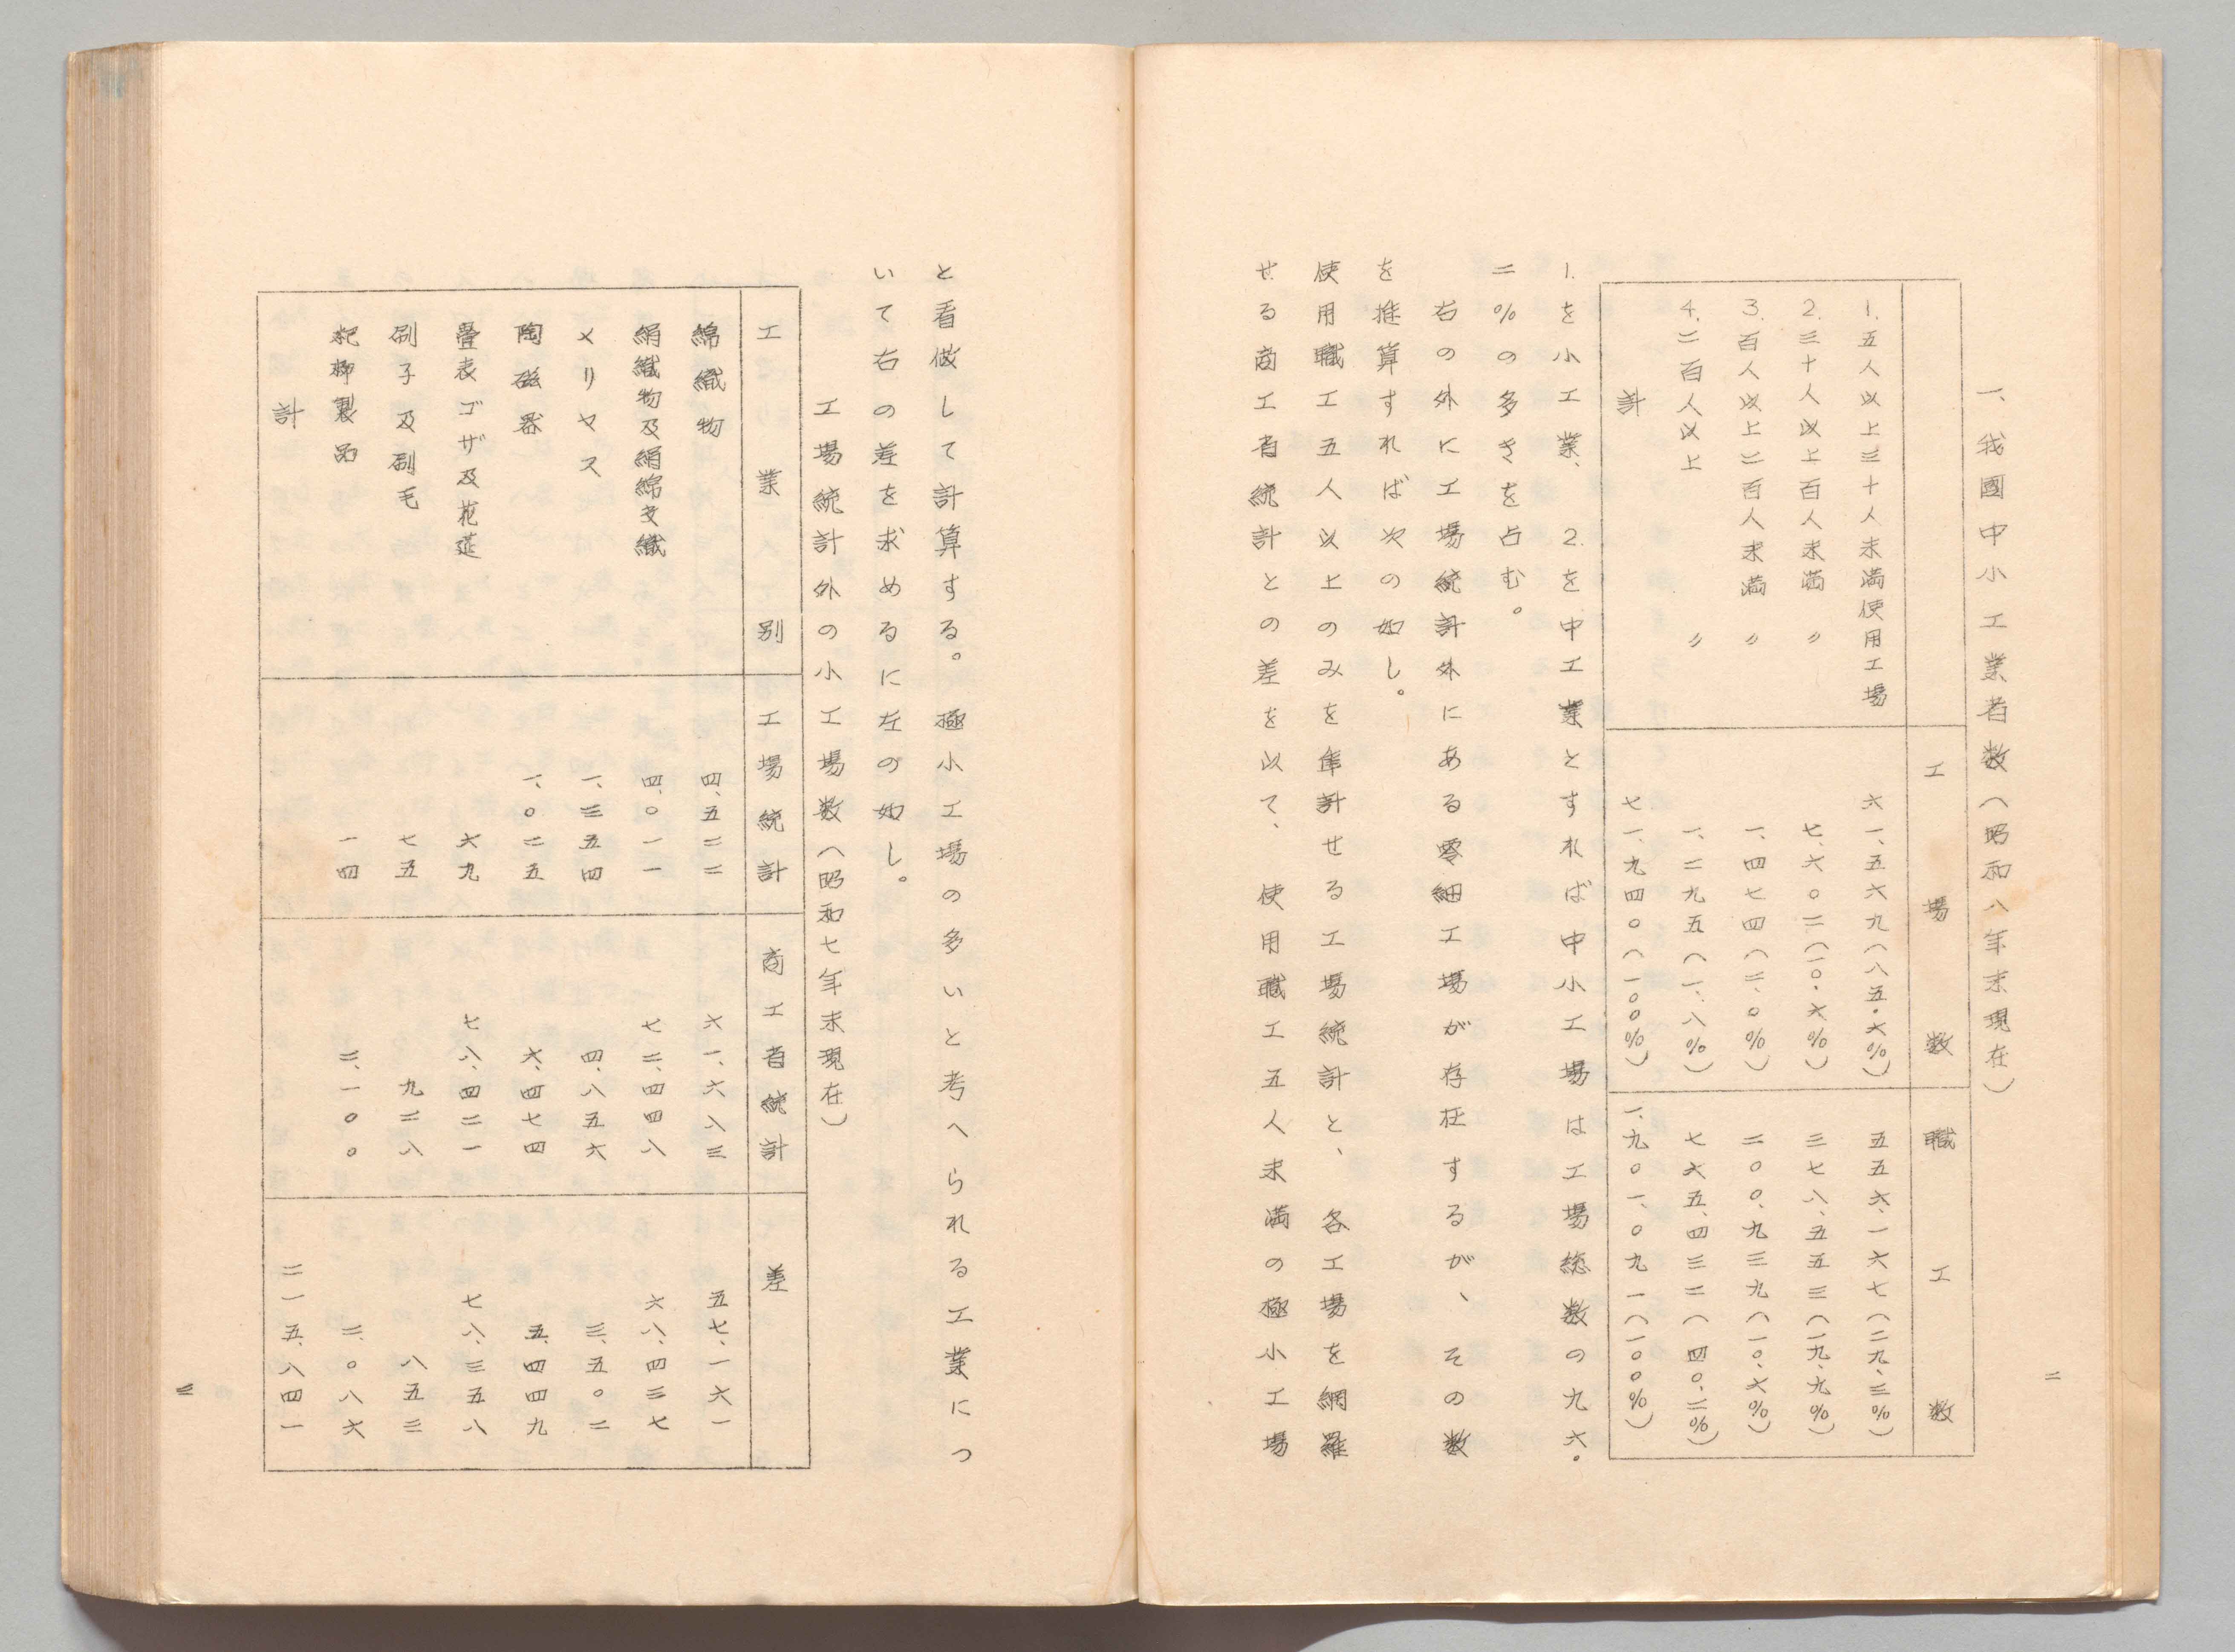 二
一、我國中小工業者数（昭和八年末現在）
工場数 職工数
1.五人以上三十人未満使用工場 六一、五六九（八五・六%） 五五六、一六七（二九、三%）
2.三十人以上百人未満 〃 七、六〇二（一〇・六%） 三七八、五五三（一九、九%）
3.百人以上二百人未満 〃 一、四七四（二、〇%） 二〇〇、九三九（一〇、六%）
4.二百人以上 〃 一、二九五（一、八%） 七六五、四三二（四〇、二%）
計 七一、九四〇（一〇〇%） 一、九〇一、〇九一（一〇〇%）
1.を小工業、2.を中工業とすれば中小工場は工場総数の九六。
二%の多きを占む。
右の外に工場統計外にある零細工場が存在するが、その数
を推算すれば次の如し。
使用職工五人以上のみを集計せる工場統計と、各工場を網羅
せる商工省統計との差を以て、使用職工五人未満の極小工場
と看做して計算する。極小工場の多いと考へられる工業につ
いて右の差を求めるに左の如し。
工場統計外の小工場数（昭和七年末現在）
工業別 工場統計 商工省統計 差
綿織物 四、五二二 六一、六八三 五七、一六一
絹織物及絹綿交織 四、〇一一 七二、四四八 六八、四三七
メリヤス 一、三五四 四、八五六 三、五〇二
陶磁器 一、〇二五 六、四七四 五、四四九
畳表ゴザ及花莚 六九 七八、四二一 七八、三五八
刷子及刷毛 七五 九二八 八五三
杞柳製品 一四 二、一〇〇 二、〇八六
計 二一五、八四一
三